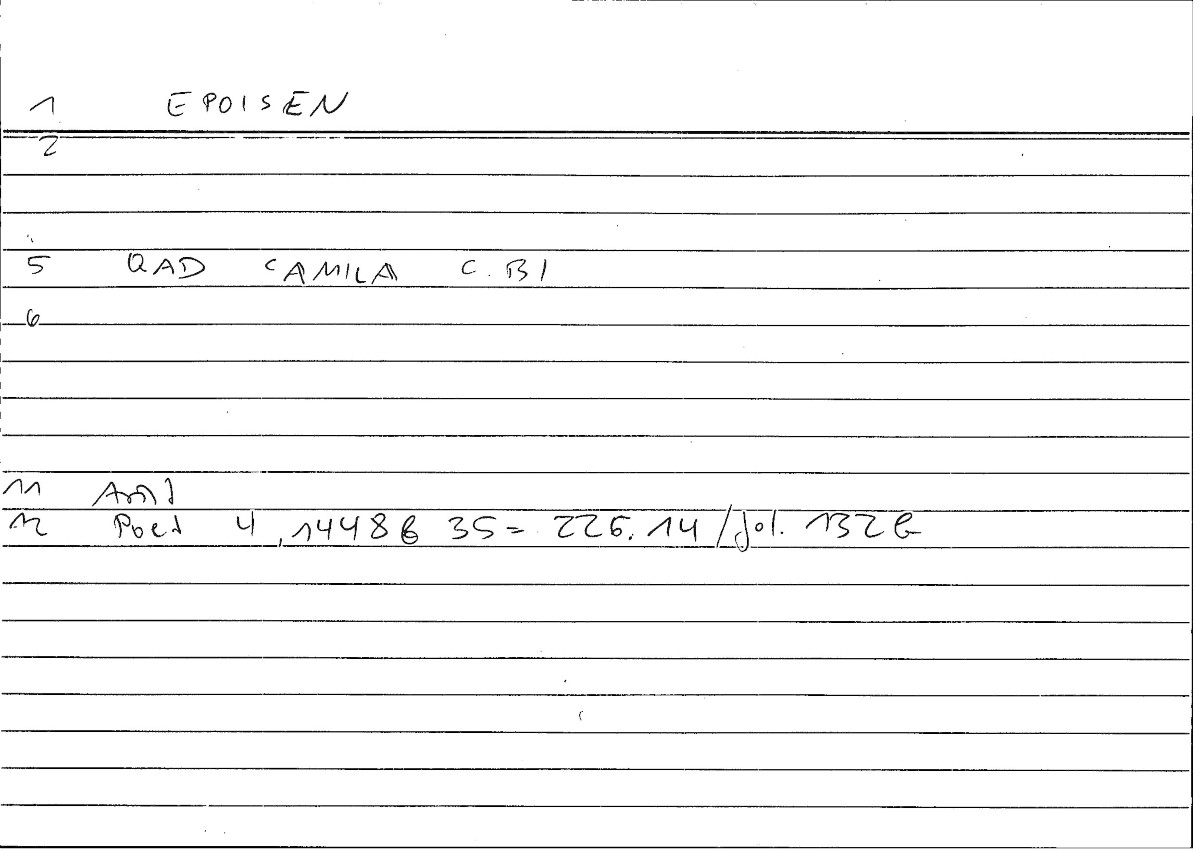 1 EPOISEN
2
5 QAD CAMILA C.BI
6
11 Aml
12 Poed 4,14486 35= 226.14/fol. 132b